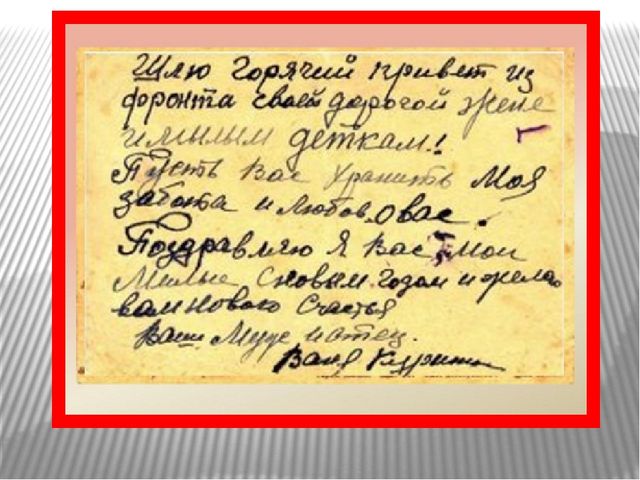 Шлю горячий привет из
фронта своей дорогой жене
и милым деткам!
Пусть Вас хранить Моя
забота и любов, о вас.
Поздравляю Я Вас, мои
Милые с новым годом и желаю
вам нового счастья
Ваш Муж и отец.
Ваня